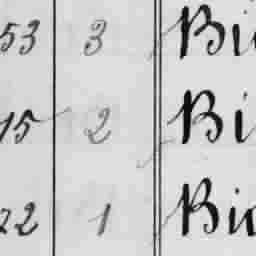 53 3 Bi
15 2 Bi
22 1 Bi